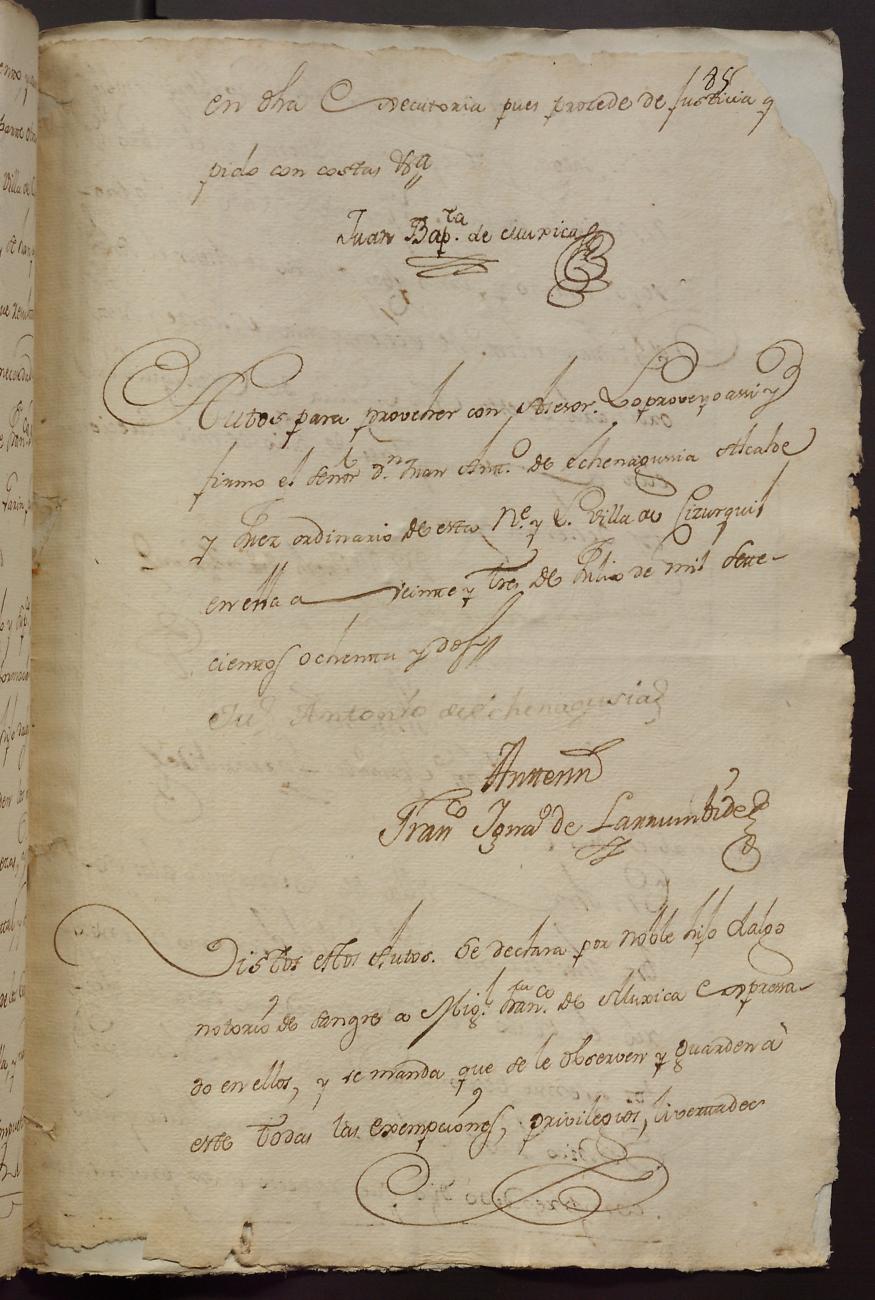 88
en dha Executoria pues procede de Justicia q
pido con costas &a
Juan Bap.ta de Muxica
Autos para proveher con Asesor. Lo proveyo assi y
firmo el señor d.n Juan Ant.o de Echenagusia Alcalde
y Juez ordinario de esta N.e y L. Villa de Cizurquil
en ella a veinte y tres de Julio de mil sete-
cientos ochenta y dos
Ju.n Antonio de Echenagusia
Antemi
Fran.co Igna.o de Larrumbide
Vistos estos Autos. Se declara por noble hijo dalgo
notorio de sangre a Mig.l Fran.co de Muxica expresa-
do en ellos, y se manda que se le observen y guarden à
este todas las exempciones, privilegios, livertades